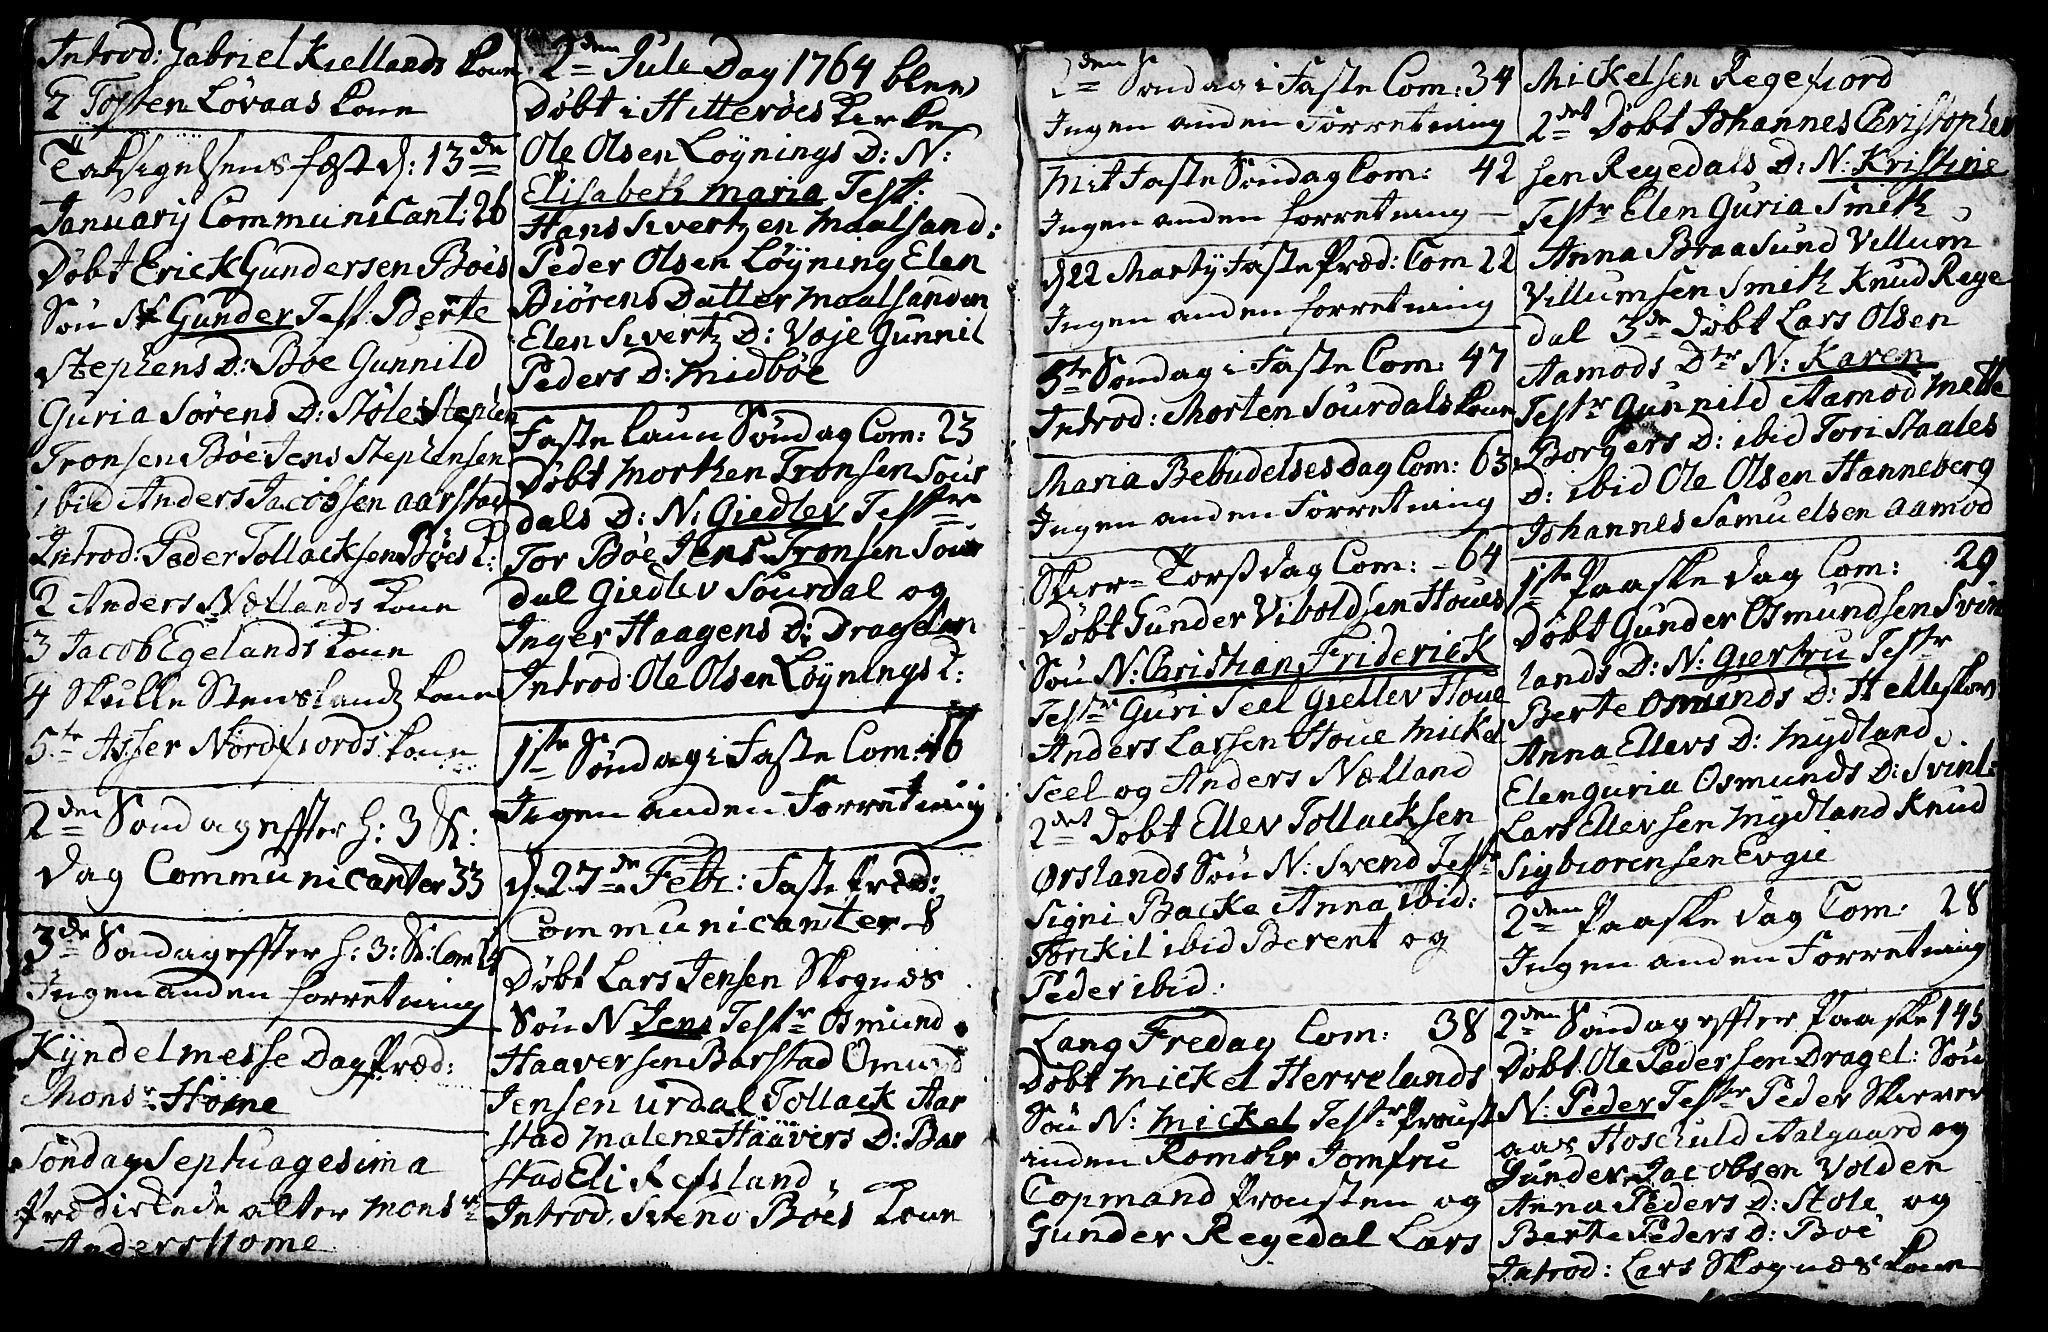 Introd: Gabriel Kiellands kone
2 Tosten Lövaas kone
Taksigelsens fæst d: 13de
Januarij Communicant: 26
Döbt Erick Gundersen Böes
Sön N Gunder Test: Berte
Stephens D: Böe Gunnild
Guria Sörens D: Stöle Stephen
Tronsen Böe Jens Stephensen
ibid Anders Jacobsen Aarstad
Introd: Peder Tollacksen Böes K:
2 Anders Nætlands kone
3 Jacob Egelands kone
4 Skulle Stenslands kone
5te Asser Nordfiords kone
2den Søndag effter h: 3 K:
Dag Communicanter 33
3de Søndag effter h: 3: K: Com 14
Ingen anden forretning
Kÿndelmesse Dag Præd:
Monsr Home
Söndag Septuagesima
Prædickede atter Monsr
Anders Home
2den Jule Dag 1764 blev
Döbt i Hitteröes Kirke
Ole Olsen Löynings D: N:
Elisabeth Maria Test:
Hans Sivertzen Maalsand:
Peder Olsen Löyning Elen
Biörens Datter Maalsanden
Elen Sivertz D: Voje Gunnil
Peders D: Midböe
Faste Laun Söndag Com: 23
Döbt Morthen Tronsen Sour
dals D: N: Giedlev Testre
Tor Böe Jens Tronsen Sour
dal Giedlev Sourdal og
Inger Haagens D: Dragelan
Introd: Ole Olsen Löynings K:
1ste Söndag i Faste Com: 16
Ingen anden Forretning
d. 27de Febr: Faste Præd:
Communicanter 8
Döbt Lars Jensen Skognæs
Sön N Jens Testr Osmund
Haaversen Barstad Omund
Jensen Urdal Tollack Aar
stad Malene Haavers D: Bar
stad Eli Refsland
Introd. Svend Böes Kone
2den Søndag i Faste Com: 34
Ingen anden Forretning
Mit Faste Søndag Com: 42
Ingen anden forretning
d 22 Martij Faste Præd: Com 22
Ingen anden forretning
5te Søndag i Faste Com: 47
Introd: Morten Sourdals kone
Maria Bebudelses Dag Com: 63
Ingen anden Forretning
Skier Torsdag Com: 64
Döbt Gunder Viboldsen Houes
Sön N: Christian Friderick
Testr Guri Seel Giellev Houe
Anders Larsen Houe Mickel
Seel og Anders Nætland
2det Döbt Ellev Tollacksen
Ørslands Sön N: Svend Testr
Signi Backe Anna ibid:
Torkil ibid Berent og
Peder ibid:
Lang Fredag Com: 38
Döbt Mickel Herrelands
Sön N: Mickel Testr Proust
inden Romohr Jomfru
Copmand Prousten og
Gunder Regedal Lars
Mickelsen Regefiord
2det Döbt Johannes Christopher
sen Regedals D: N: Kristine
Testr Elen Guria Smith
Anna Braasund Villum
Villumsen Smith Knud Rege
dal 3de Döbt Lars Olsen
Aamods Dtr N: Karen
Testr Gunnild Aamod Mette
Borgers D: ibid Tori Staales
D: ibid Ole Olsen Hanneberg
Johannes Samuelsen Aamod
1ste Paaske Dag Com: 29
Döbt Gunder Osmundsen Svin
lands D: N: Giertru Testr
Berte Osmunds D: Helleskov
Anna Ellevs D: Mÿdland
Elen Guria Osmunds D: Svinl:
Lars Ellevsen Mÿdland Knud
Sigbiorensen Evgie
2den Paaske Dag Com: 28
Ingen anden Forretning
2den Søndag effter Paaske 145
Döbt Ole Pedersen Dragel: Sön
N: Peder Testr Peder Skierver
aas Hoschuld Aalgaard og
Gunder Jacobsen Volden
Anna Peders D: Stöle og
Berte Peders D: Böe
Introd: Lars Skognæs kone